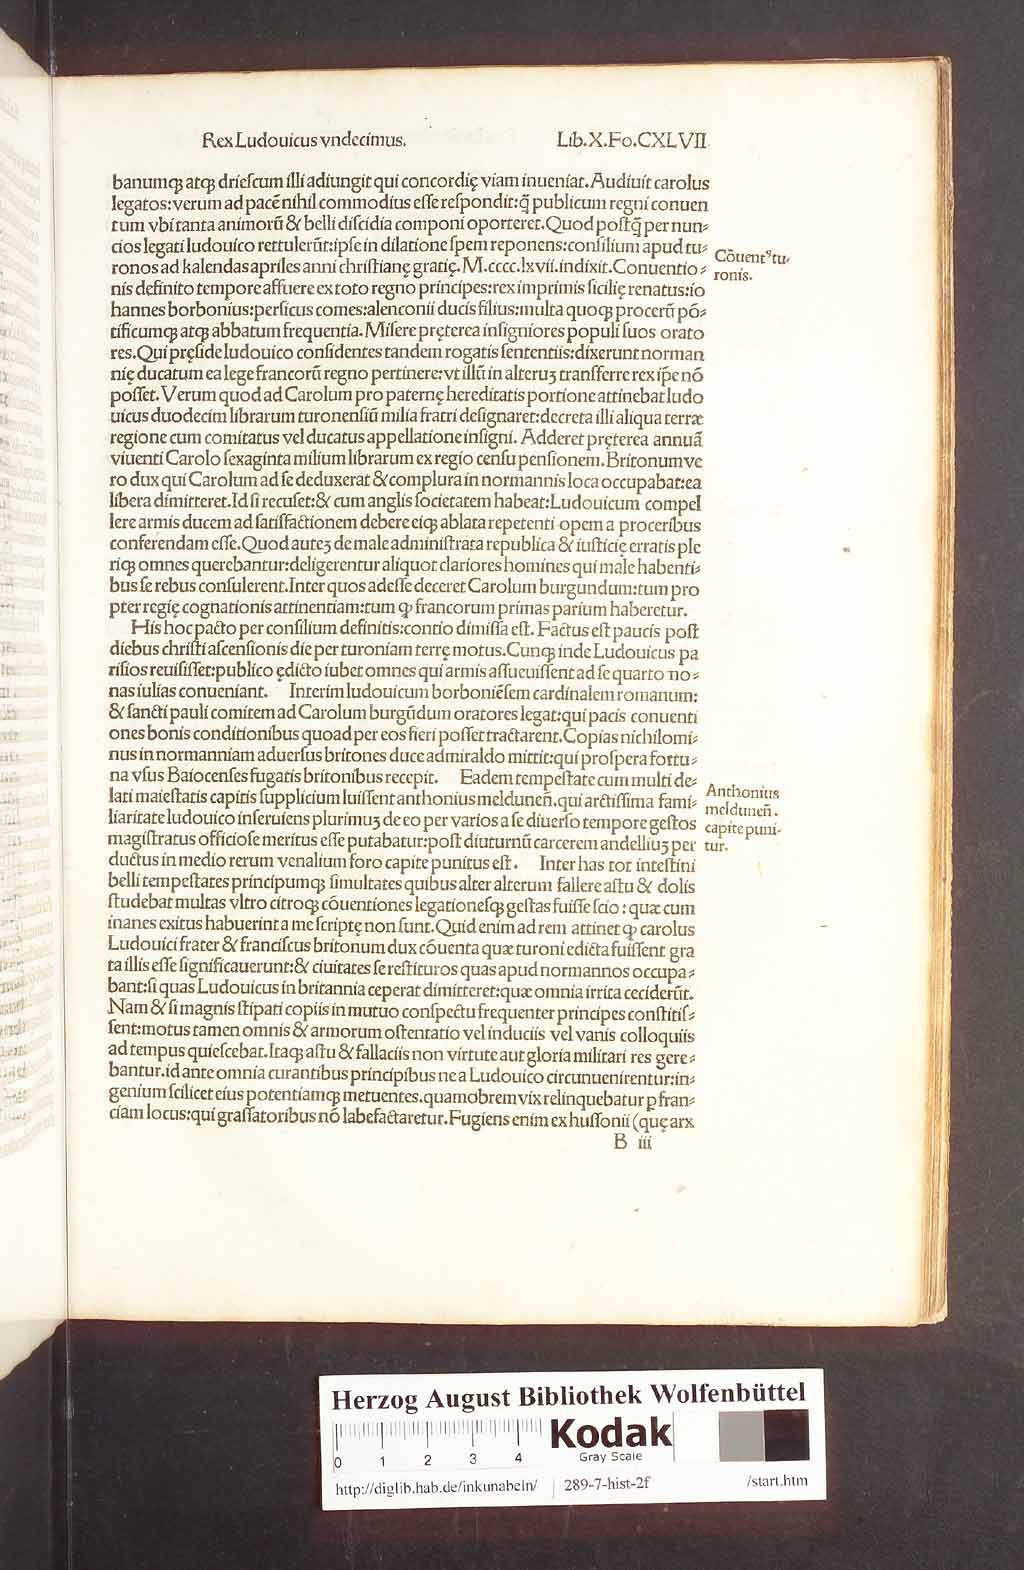 Rex Ludouicus vndecimus. Lib.X.Fo.CXLVII
banumq̨ atq̨ drieſcum illi adiungit qui concordię viam inueniat. Audiuit carolus
legatos: verum ad pacē nihil commodius eſſe reſpondit: q̃ publicum regni conuen
tum vbi tanta animorū & belli diſcidia componi oporteret. Quod poſtq̃ per nun⸗
cios legati ludouico rettulerūt: ipſe in dilatione ſpem reponens: conſilium apud tu⸗
ronos ad kalendas apriles anni chriſtianę gratię. M.cccc.lxvii. indixit. Conuentio⸗
nis definito tempore affuere ex toto regno principes: rex imprimis ſicilię renatus: io
hannes borbonius: perſicus comes: alenconii ducis filius: multa quoq̨ procerū pō⸗
tificumq̨ atq̨ abbatum frequentia. Miſere pręterea inſigniores populi ſuos orato
res. Qui pręſide ludouico conſidentes tandem rogatis ſententiis: dixerunt norman
nię ducatum ea lege francorū regno pertinere: vt illū in alteruꝫ tranſferre rex ip̄e nō
poſſet. Verum quod ad Carolum pro paternę hereditatis portione attinebat ludo
uicus duodecim librarum turonenſiū milia fratri deſignaret: decreta illi aliqua terræ
regione cum comitatus vel ducatus appellatione inſigni. Adderet pręterea annuā
viuenti Carolo ſexaginta milium librarum ex regio cenſu penſionem. Britonum ve
ro dux qui Carolum ad ſe deduxerat & complura in normannis loca occupabat: ea
libera dimitteret. Id ſi recuſet: & cum anglis ſocietatem habeat: Ludouicum compel
lere armis ducem ad ſatiſfactionem debere eiq̨ ablata repetenti opem a proceribus
conferendam eſſe. Quod auteꝫ de male adminiſtrata republica & iuſticię erratis ple
riq̨ omnes querebantur: deligerentur aliquot clariores homines qui male habenti⸗
bus ſe rebus conſulerent. Inter quos adeſſe deceret Carolum burgundum: tum pro
pter regię cognationis attinentiam: tum ꝙ francorum primas parium haberetur.
His hoc pacto per conſilium definitis: contio dimiſſa eſt. Factus eſt paucis poſt
diebus chriſti aſcenſionis die per turoniam terrę motus. Cunq̨ inde Ludouicus pa
riſios reuiſiſſet: publico ędicto iubet omnes qui armis aſſueuiſſent ad ſe quarto no⸗
nas iulias conueniant. Interim ludouicum borboniēſem cardinalem romanum:
& ſancti pauli comitem ad Carolum burgūdum oratores legat: qui pacis conuenti
ones bonis conditionibus quoad per eos fieri poſſet tractarent. Copias nichilomi⸗
nus in normanniam aduerſus britones duce admiraldo mittit: qui proſpera fortu⸗
na vſus Baiocenſes fugatis britonibus recepit. Eadem tempeſtate cum multi de⸗
lati maieſtatis capitis ſupplicium luiſſent anthonius meldunen̄. qui arctiſſima fami⸗
liaritate ludouico inſeruiens plurimuꝫ de eo per varios a ſe diuerſo tempore geſtos
magiſtratus officioſe meritus eſſe putabatur: poſt diuturnū carcerem andelliuꝫ per
ductus in medio rerum venalium foro capite punitus eſt. Inter has tot inteſtini
belli tempeſtates principumq̨ ſimultates quibus alter alterum fallere aſtu & dolis
ſtudebat multas vltro citroq̨ cōuentiones legationeſq̨ geſtas fuiſſe ſcio: quæ cum
inanes exitus habuerint a me ſcriptę non ſunt. Quid enim ad rem attinet ꝙ carolus
Ludouici frater & franciſcus britonum dux cōuenta quæ turoni edicta fuiſſent gra
ta illis eſſe ſignificauerunt: & ciuitates ſe reſtituros quas apud normannos occupa⸗
bant: ſi quas Ludouicus in britannia ceperat dimitteret: quæ omnia irrita ceciderūt.
Nam & ſi magnis ſtipati copiis in mutuo conſpectu frequenter principes conſtitiſ⸗
ſent: motus tamen omnis & armorum oſtentatio vel induciis vel vanis colloquiis
ad tempus quieſcebat. Itaq̨ aſtu & fallaciis non virtute aut gloria militari res gere⸗
bantur. id ante omnia curantibus principibus ne a Ludouico circunuenirentur: in⸗
genium ſcilicet eius potentiamq̨ metuentes. quamobrem vix relinquebatur ꝑ fran⸗
ciam locus: qui graſſatoribus nō labefactaretur. Fugiens enim ex huſſonii (quę arx
B iii
Cōuentꝰ tu⸗
ronis.
Anthonius
meldunen̄.
capite puni⸗
tur.
Herzog August Bibliothek Wolfenbüttel
0 1 2 3 4
Kodak
Gray Scale
http://diglib.hab.de/inkunabeln/ 289-7-hist-2f /start.htm